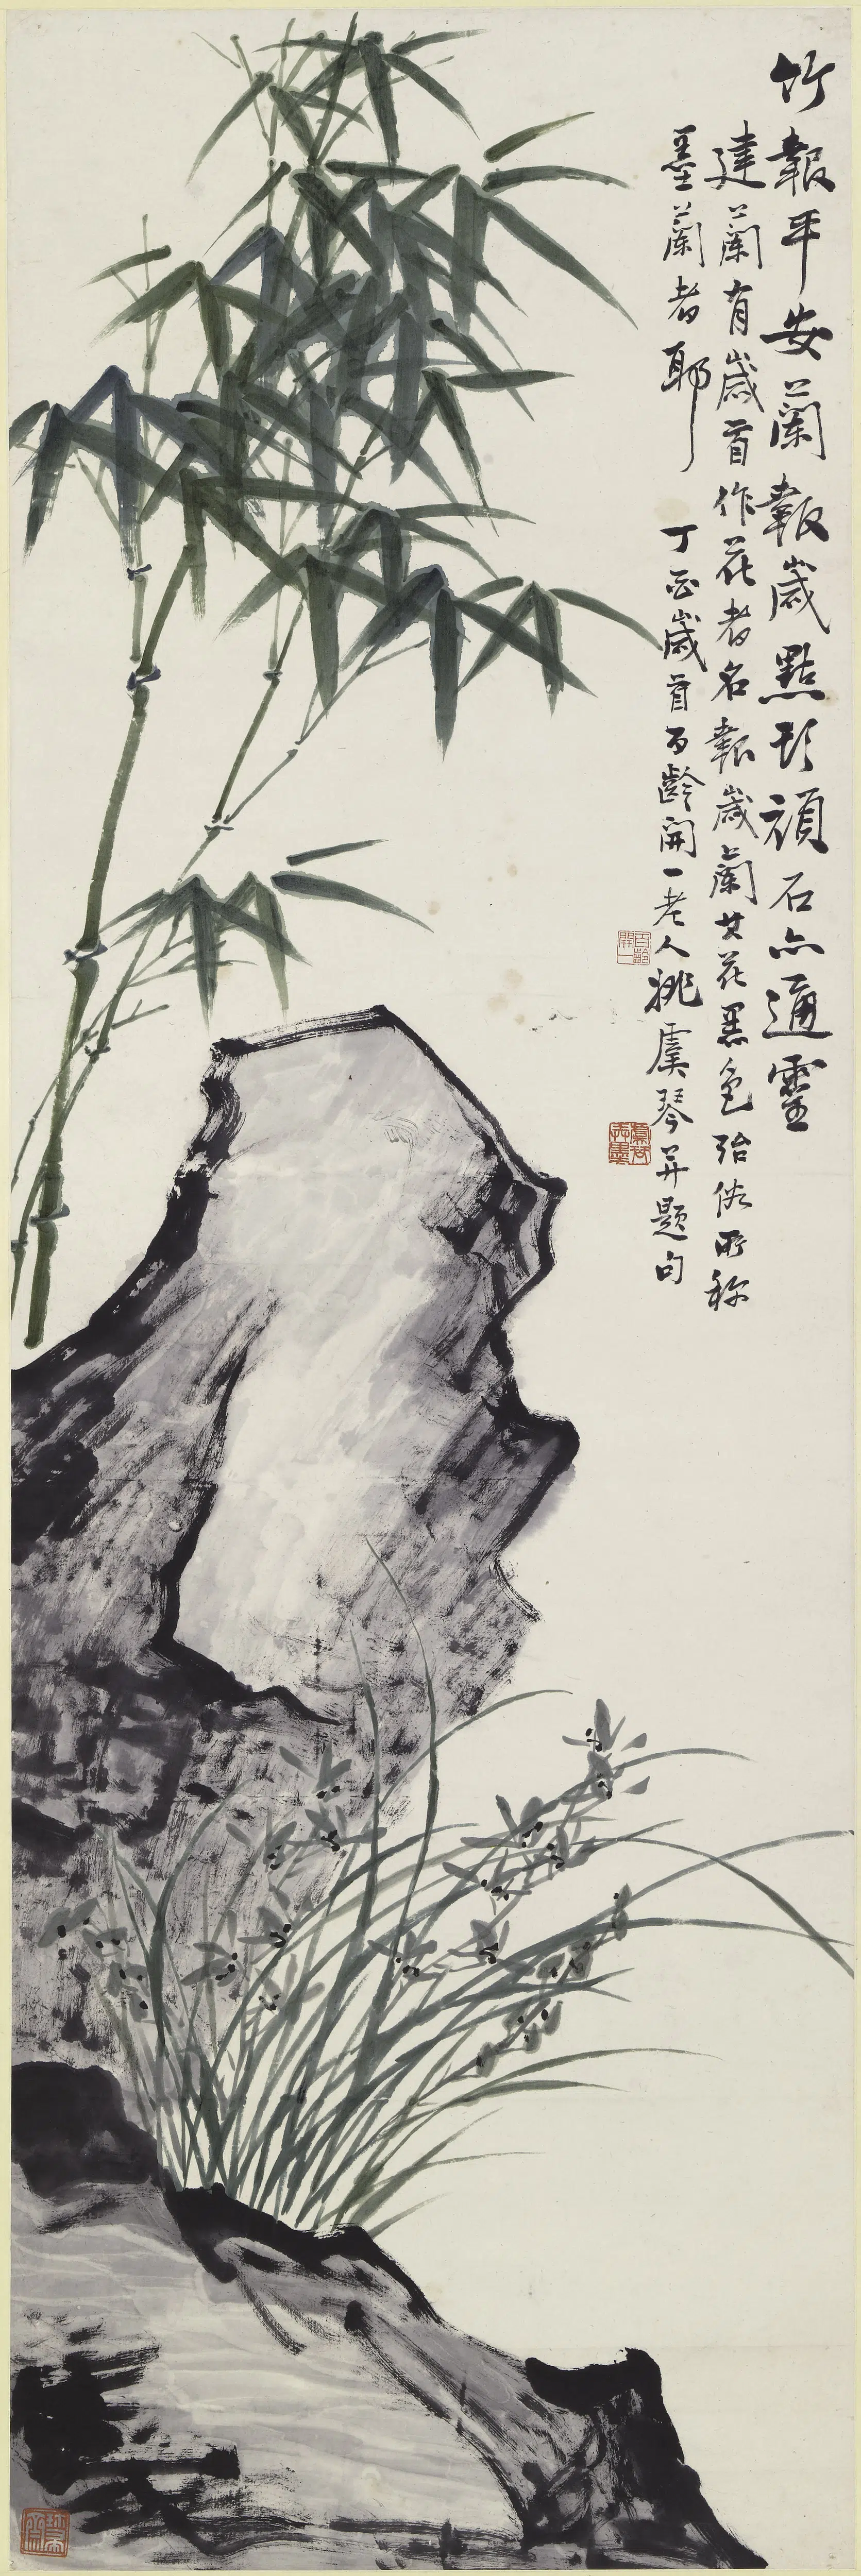 竹報平安蘭報歲點頭頑石亦通靈
建蘭有歲首作花者名報歲蘭其花墨色殆俗所稱
墨蘭者耶 丁酉歲首百齡開一老人姚虞琴并題句
百齡開一